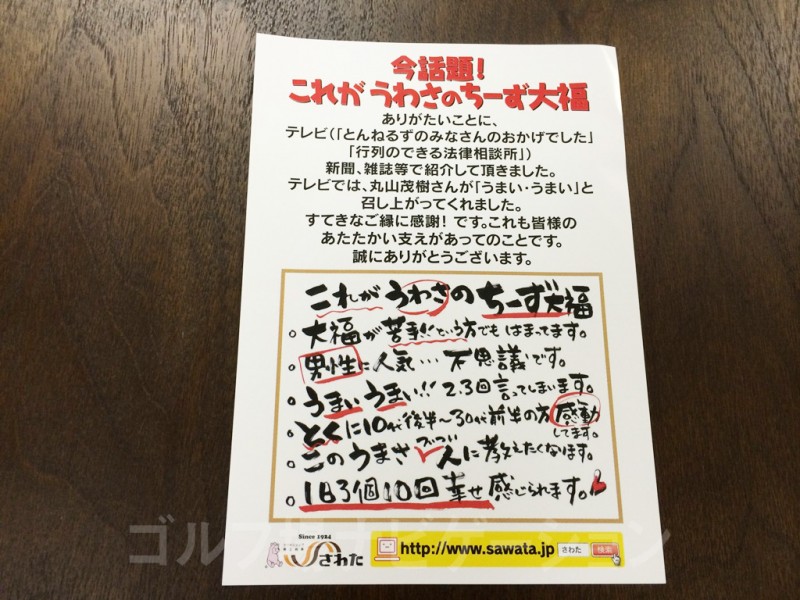 今話題！
これが うわさのちーず大福
ありがたいことに、
テレビ（「とんねるずのみなさんのおかげでした」
「行列のできる法律相談所」）
新聞、雑誌等で紹介して頂きました。
テレビでは、丸山茂樹さんが「うまい・うまい」と
召し上がってくれました。
すてきなご縁に感謝！です。これも皆様の
あたたかい支えがあってのことです。
誠にありがとうございます。
これが うわさの ちーず大福
大福が苦手!!という方でも はまってます。
男性に人気… 不思議です。
うまい うまい!! 2.3回言ってしまいます。
とくに10代後半〜30代前半の方 感動
してます。
このうまさ ついつい 人に教えたくなります。
1日3個10回 幸せ 感じられます。
Since 1924
さわた
http://www.sawata.jp さわた 検索
ゴルフトナビゲーション